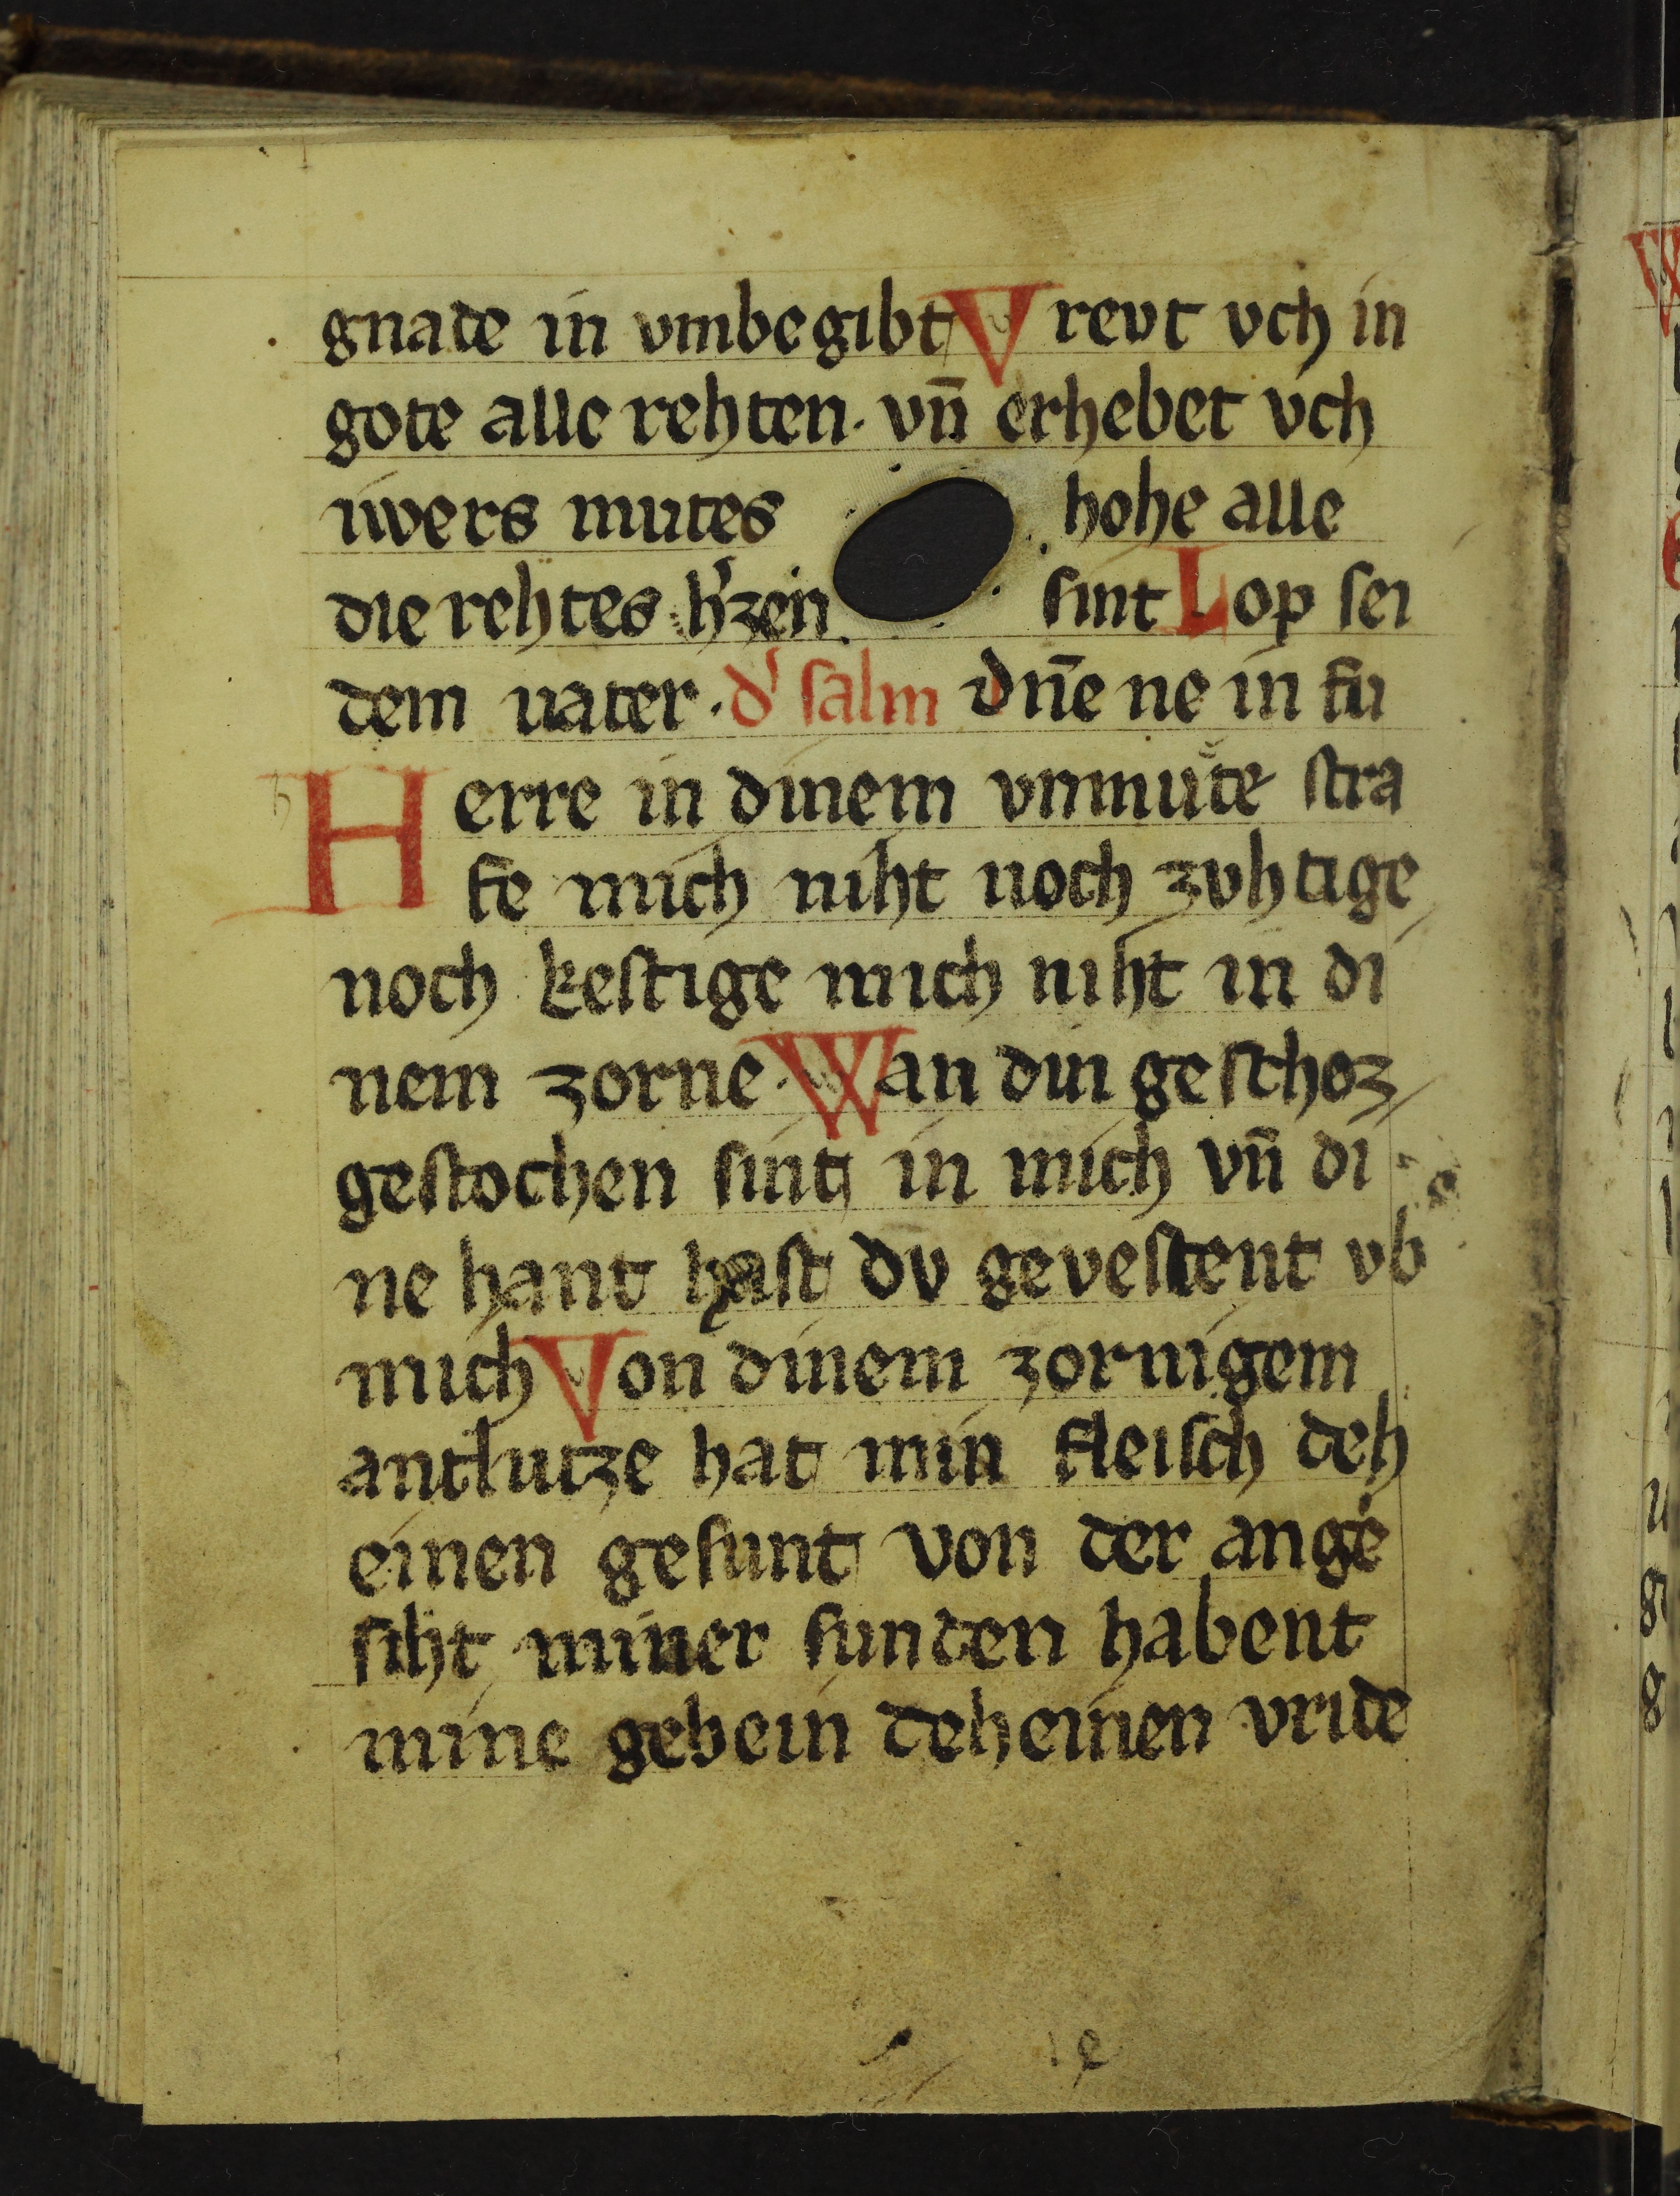 gnade in vmbegibt Vrevt vch in
gote alle rehten. vn̄ erhebet vch
iwers mutes hohe alle
die rehtes h'zen sint Lop sei
dem uater. d' salm dn̄e ne in fu
Herre in dinem vnmuͦte stra
fe mich niht noch zvhtige
noch kestige mich niht in di
nem zorne. Wan din geschoz
gestochen sint in mich vn̄ di
ne hant hast dv gevestent vb
mich Von dinem zornigem
antlutze hat min fleisch deh
einen gesunt von der ange
siht miner sunden habent
mine gebein deheinen vride